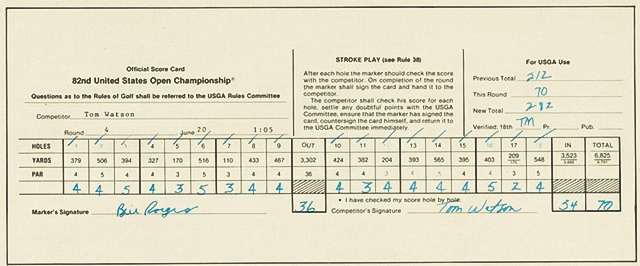 Official Score Card
82nd United States Open Championship®
Questions as to the Rules of Golf shall be referred to the USGA Rules Committee
Competitor Tom Watson
Round 4 June 20 1:05
STROKE PLAY (see Rule 38)
After each hole the marker should check the score
with the competitor. On completion of the round
the marker shall sign the card and hand it to the
competitor.
The competitor shall check his score for each
hole, settle any doubtful points with the USGA
Committee, ensure that the marker has signed the
card, countersign the card himself, and return it to
the USGA Committee immediately.
For USGA Use
Previous Total 212
This Round 70
New Total 282
Verified: 18th TM Pr. Pub.
HOLES 1 2 3 4 5 6 7 8 9 OUT 10 11 12 13 14 15 16 17 18 IN TOTAL
YARDS 379 506 394 327 170 516 110 433 467 3,302 424 382 204 393 565 395 403 209 548 3,523 6,825
175 3,489 6,791
PAR 4 5 4 4 3 5 3 4 4 36 4 4 3 4 5 4 4 3 5
4 4 5 4 3 5 3 4 4 36 4 3 4 4 4 4 5 2 4 34 70
• I have checked my score hole by hole.
Marker's Signature Bill Rogers Competitor's Signature Tom Watson